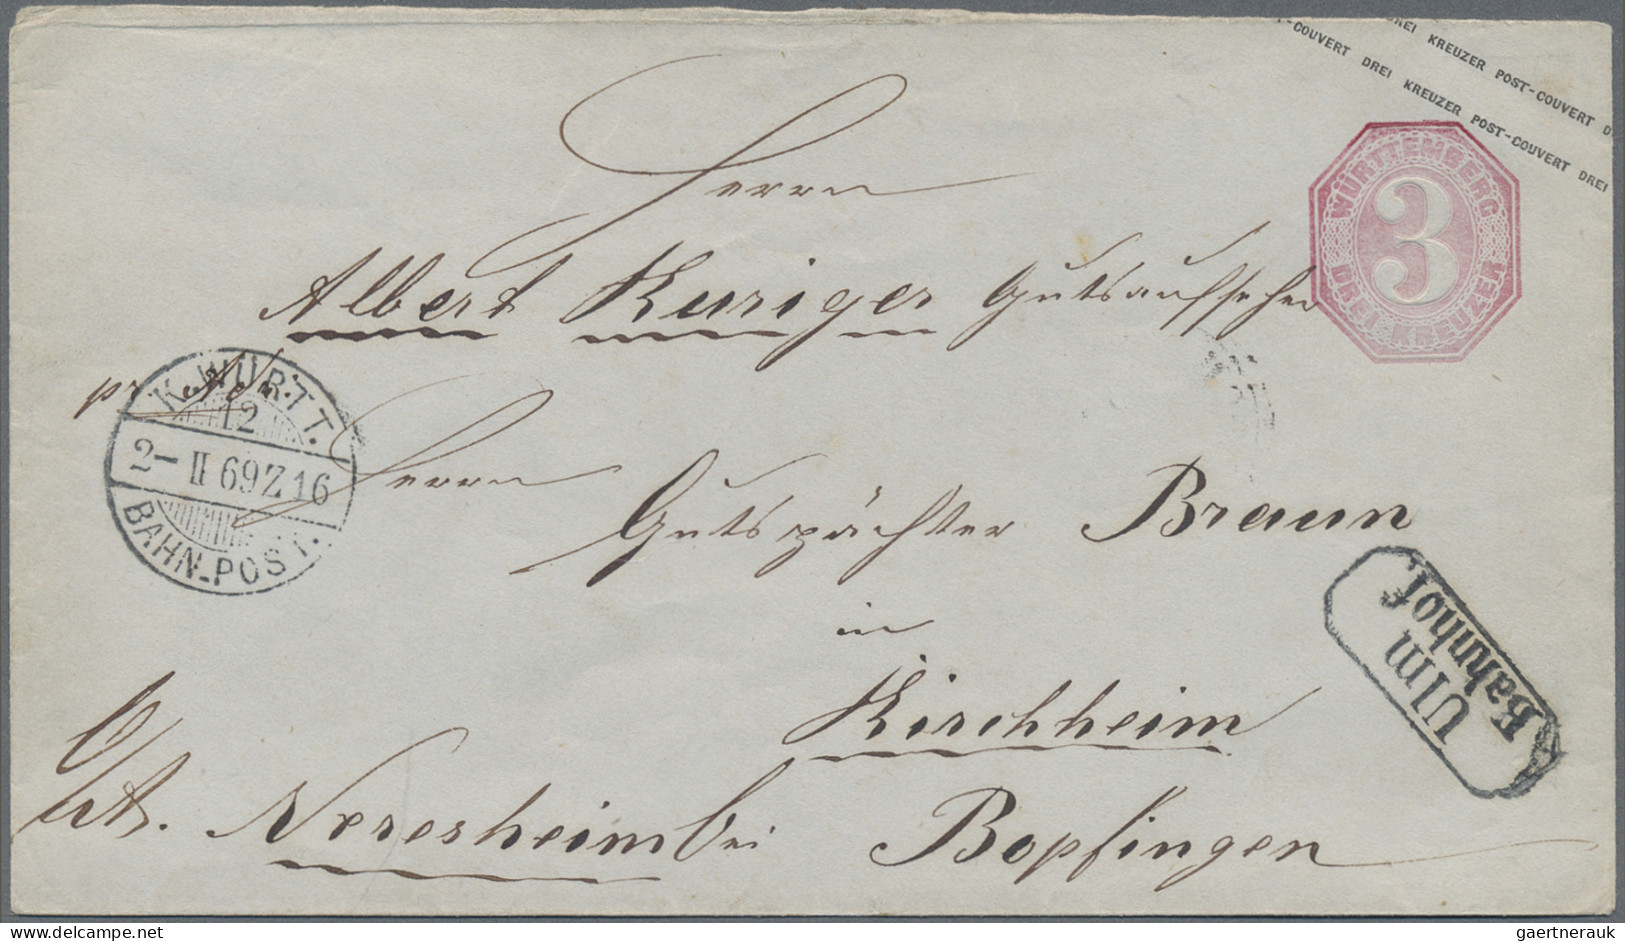 DREI KREUZER POST-COUVERT D
T-COUVERT DREI KREUZER POST-COUVERT DREI
WÜRTTEMBERG
3
DREI KREUZER
Herrn
Albert Kuriger Gutsaufseher
pr. Adr.
K. WÜRTT.
12
2-II 69 Z 16
BAHN-POST.
Herrn
Gutspächter Braun
in
Kirchheim
Ulm
Bahnhof
O/A. Neresheim bei Bopfingen
gaertnerauk